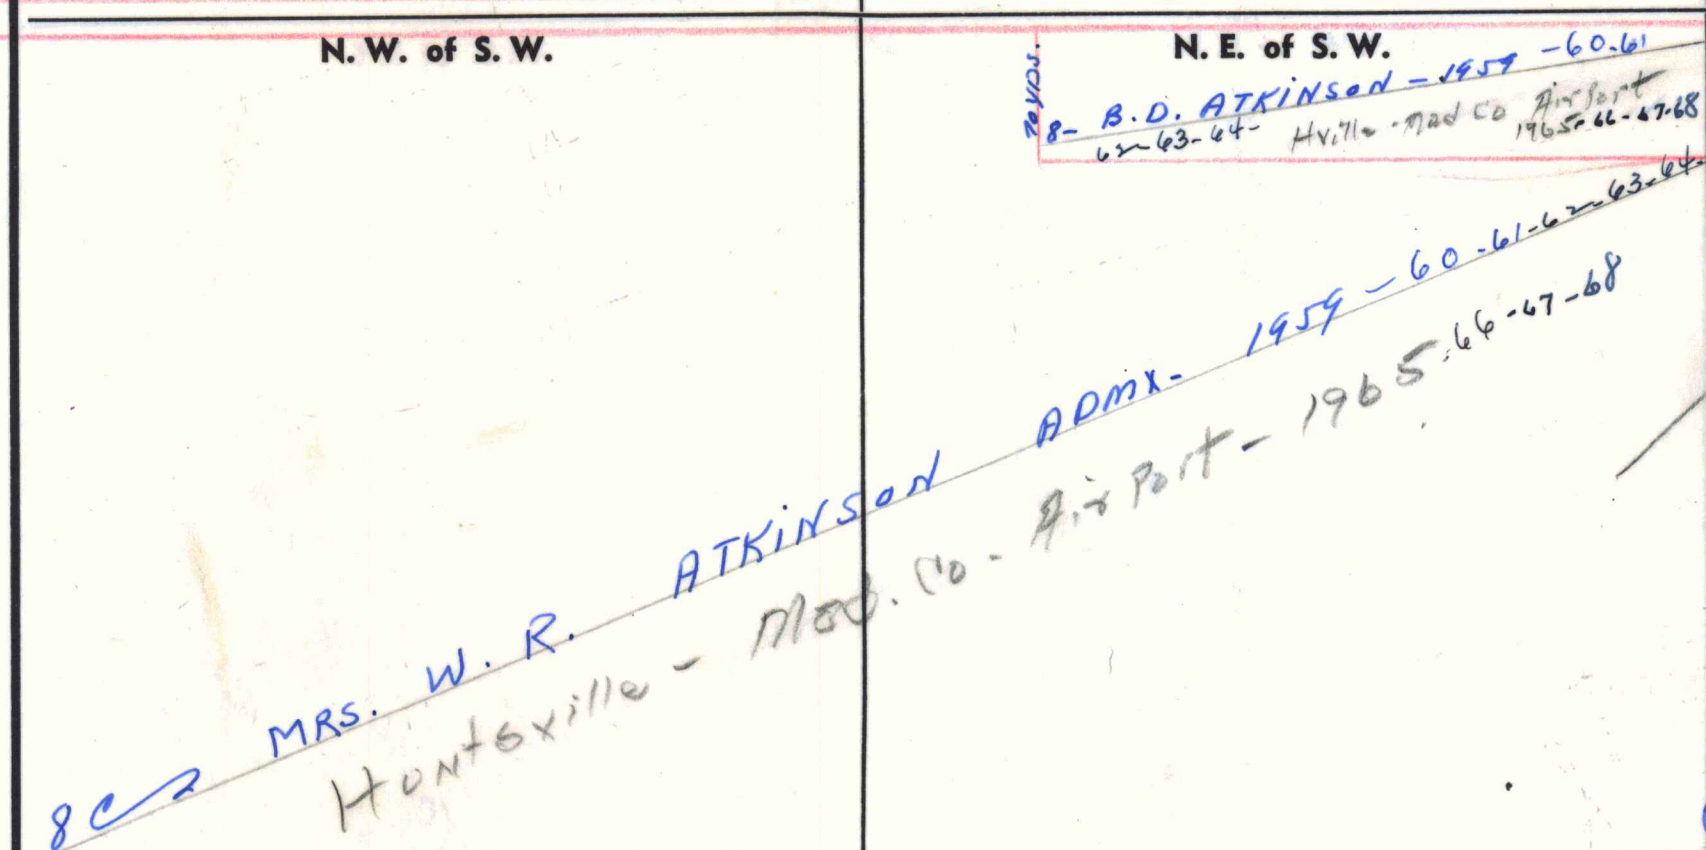 N. W. of S. W.
N. E. of S. W.
70 YDS.
8- B.D. ATKINSON - 1959 -60-61
62-63-64-
Hville - Mad Co Air Port
1965-66-67-68
8 MRS. W. R. ATKINSON ADMX- 1959 - 60 -61-62-63-64-
Huntsville - Mad. Co - Air Port - 1965-66-67-68